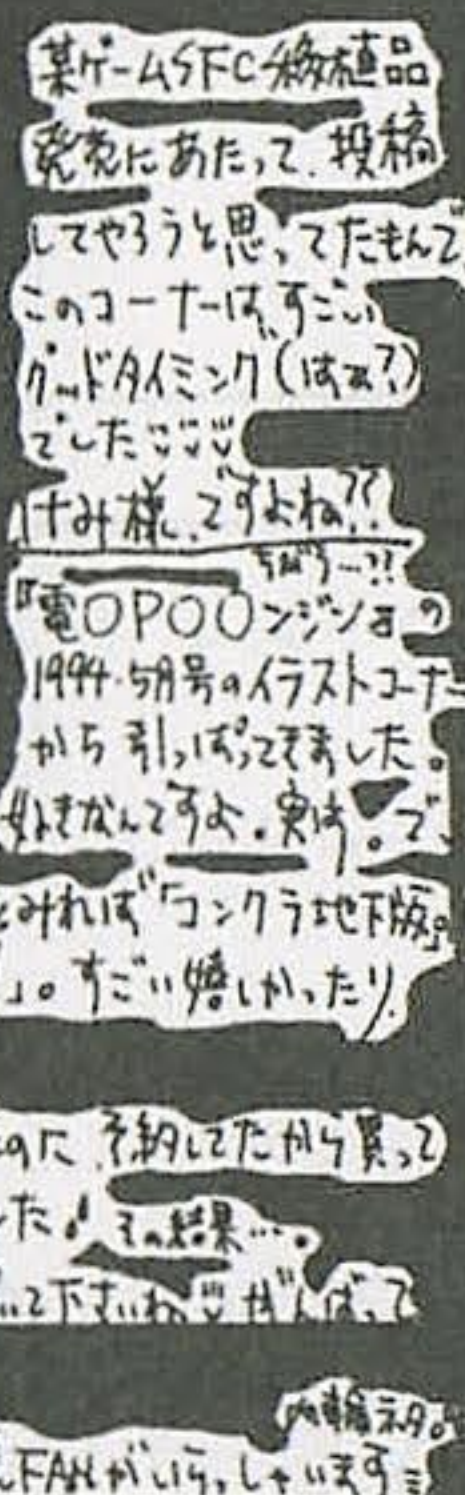 某ゲームSFC移植品
発売にあたって、投稿
してやろうと思ってたもんで
このコーナーは、すごい
グッドタイミング(はぁ?)
でした
けみ様、ですよね??
ちがう…??
『電〇P〇〇ンジン』の
1994・5月号のイラストコーナー
から引っぱってきました。
好きなんですよ。実は。で、
とみれば『コンクラ地下版』
」。すごい嬉しかったり。
のに、予約してたから買って
した! その結果…。
いて下さいね がんばって
内輪ネタ。
FANがいらっしゃいます